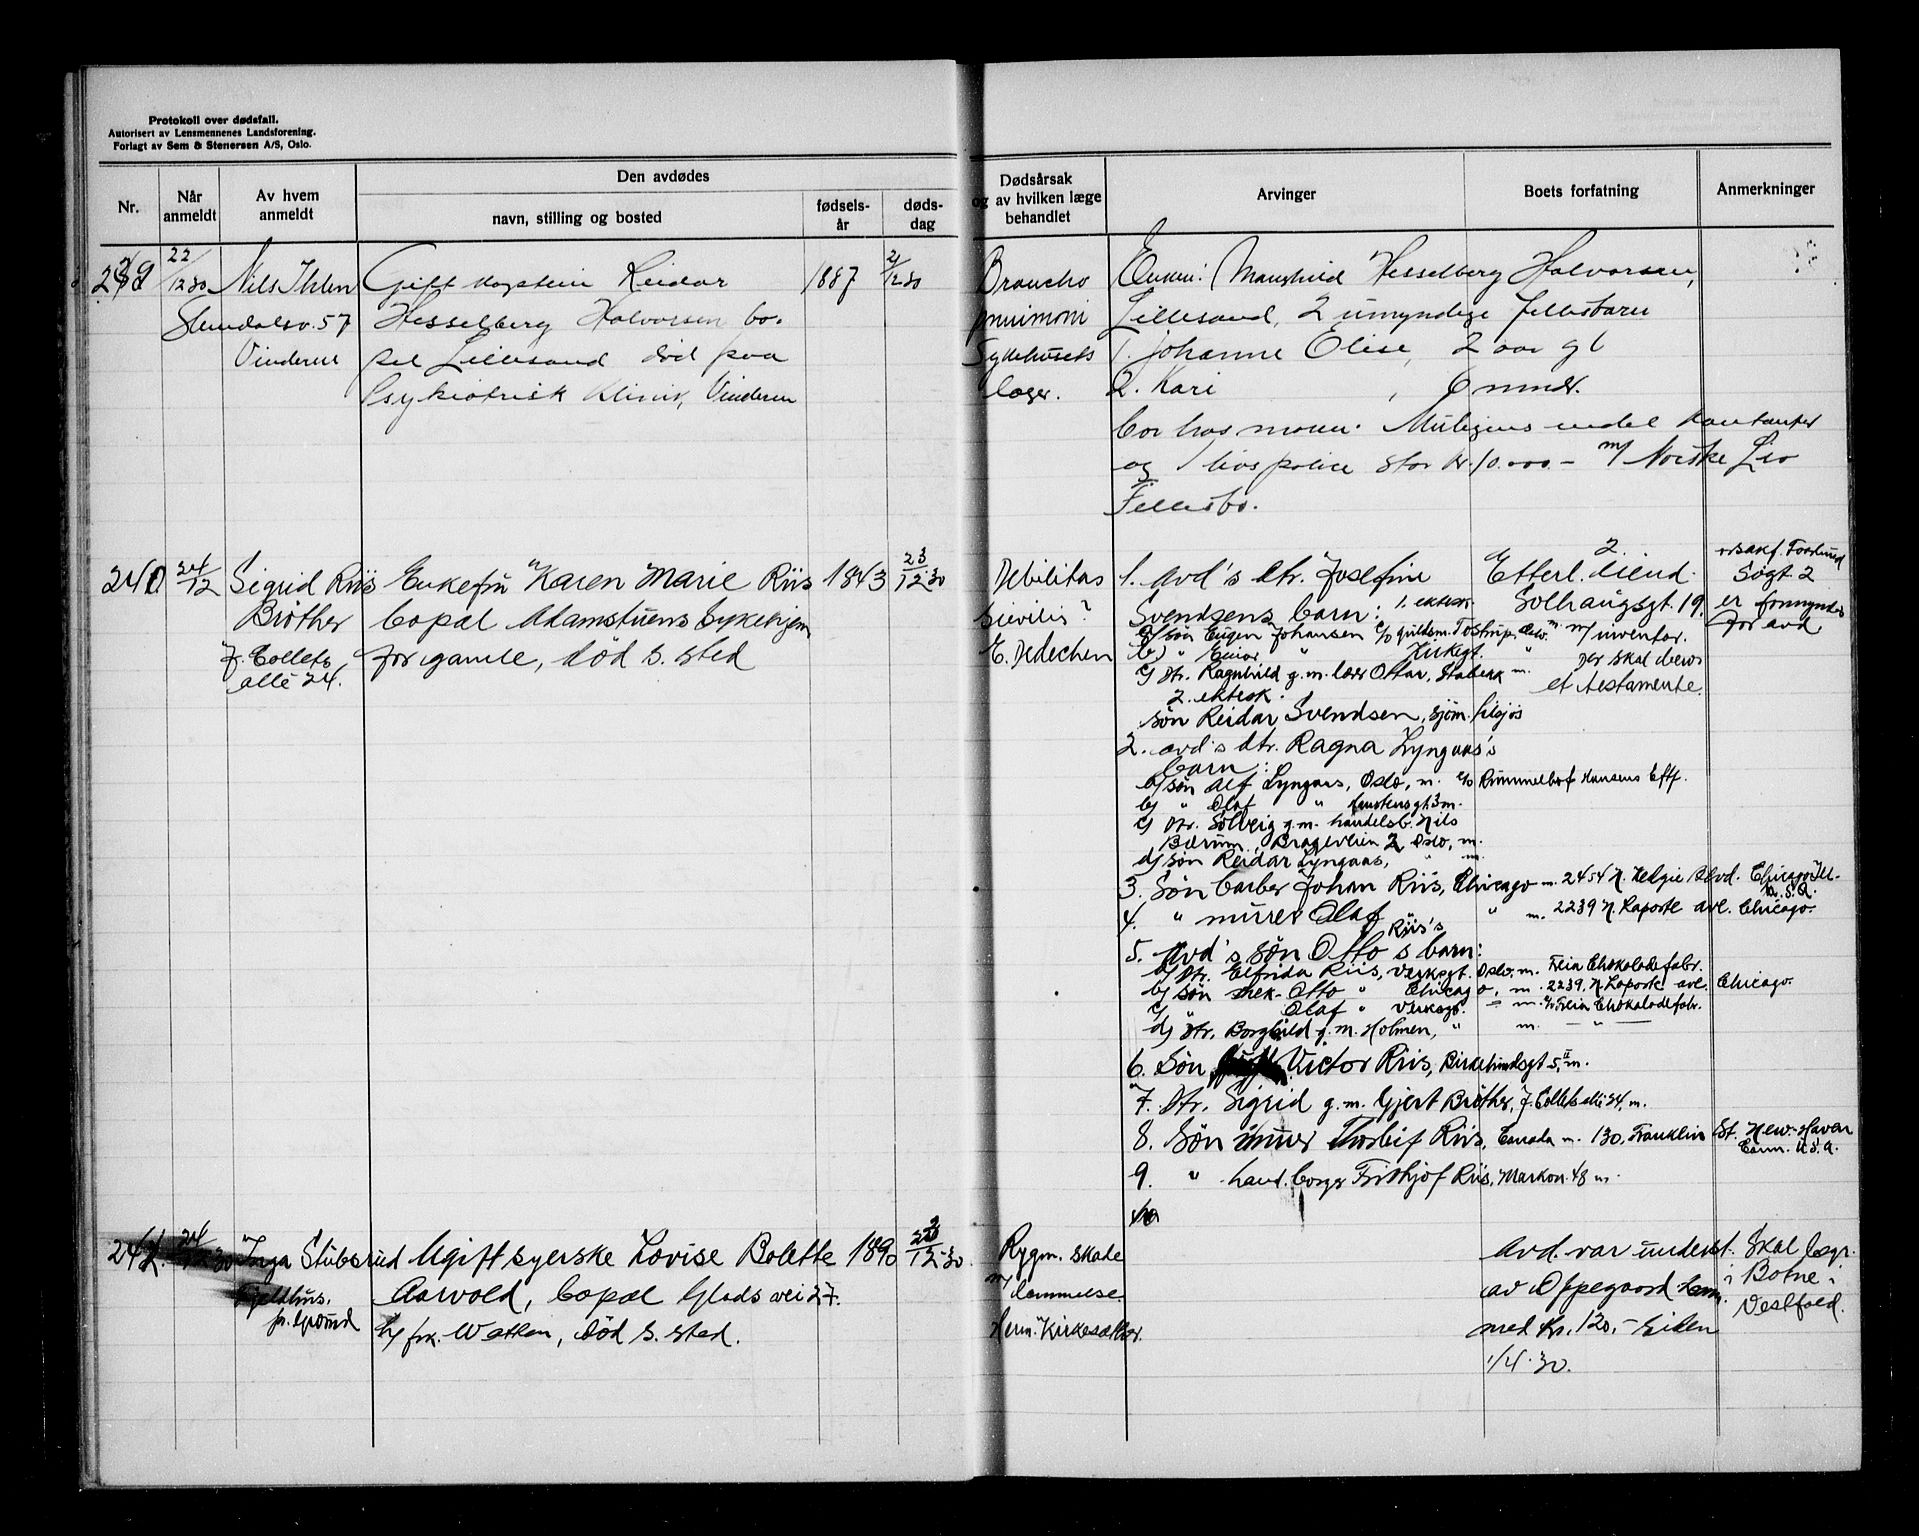 Protokoll over dødsfall.
Autorisert av Lensmennenes Landsforening.
Forlagt av Sem & Stenersen A/S, Oslo.
Nr.
Når anmeldt
Av hvem anmeldt
Den avdødes
navn, stilling og bosted
fødsels-år
døds-dag
Dødsårsak
og av hvilken læge
behandlet
Arvinger
Boets forfatning
Anmerkninger
239
22/12 30
Nils Ihlen
Slemdalsv. 57
Vinderen
Gift kaptein Reidar
Hesselberg Halvorsen bo-
pel Lillesand død paa
Psykiatrisk Klinik, Vinderen
1887
2/12 30
Broncho
Sykehusets
læger.
Enken: Hesselberg Halvorsen,
Lillesand, 2 umyndige fellesbarn
1. Johanne Elise, 2 aar gl
2. Kari, 6 mndr.
bor hos moren. Muligens endel kontanter
og 1 livspolice stor kr. 10.000- m/ Norske Liv
Fellesbo.
240
24/12
Sigrid Riis
Brøther
J. Collets
allé 24.
Enkefru Karen Marie Riis
bopæl Adamstuens Sykehjem
for gamle, død s. sted
1843
23/12-30
Debilitas
senilis?
E. Dedechen
1. Avd's dtr. Josefine
Svendsens barn: 1. ektesk.
a/ søn Eugen Johansen c/o guldsm. Tostrup, Oslo. m.
b) " Einar " Kirkegt. "
c) dtr. Ragnhild g. m. lærer Ottar, Stabekk m.
2. ektesk.
søn Reidar Svendsen, sjøm. tilsjøs
2. avd's dtr. Ragna Lyngaas's
barn:
a/ søn Alf Lyngaas, Oslo, m. c/o Rummelhof Hansens Eftf.
b) " Olaf " gt. 3 m.
c) dtr. Solveig g. m. handelsb. Nils
Bærum, Brageveien 2, Oslo, m.
d) søn Reidar Lyngaas, " m.
3. Søn barber Johan Riis, Chicago m. 2454 N. Blvd. Chicago Ill.
U.S.A.
4. " murer Olaf " m. 2239 N. Laporte ave. Chicago.
5. Avd's søn Otto Riis's barn:
a/ dtr. Elfrida Riis, Verksgt. Oslo, m. Freia Chokoladefabr.
b/ søn mek. Otto " Chicago, m. 2239, N. Laporte ave. Chicago.
c) " Olaf " Verksgt. " m. c/o Freia Chokoladefabr.
d) dtr. Borghild g. m. Holmen, " m. — " —
6. Søn Victor Riis, Birkelundsgt 5, II m.
7. Dtr. Sigrid g. m. Gjert Brøther, J. Collets allé 24, m.
8. Søn murer Thorleif Riis, Canada m. 130, Franklin St. New-Haven
Conn. U.S.A.
9. " hand. borger Frithjof Riis, Markvn. 48 m.
Etterl. eiend.
Solhaugsgt. 19.
m/ inventar.
Der skal bero
et testamente.
o.r.sakf. Foslund
Søgt. 2
er formynder
for avd
241.
24/12 30
Inga Stubsrud
Fjeldhus,
pr. Grorud
Ugift syerske Lovise Bolette
Aarvold, bopæl Glads vei 27.
h/ frk. Watten, død s. sted.
1890
22/12-30.
Rygm. skade
m/
lammelse.
Herm. Kirkesæther.
Avd. var underst.
av Oppegaard kom.
med kr. 120,- siden
1/4-30.
Skal begr.
i Botne i
Vestfold.